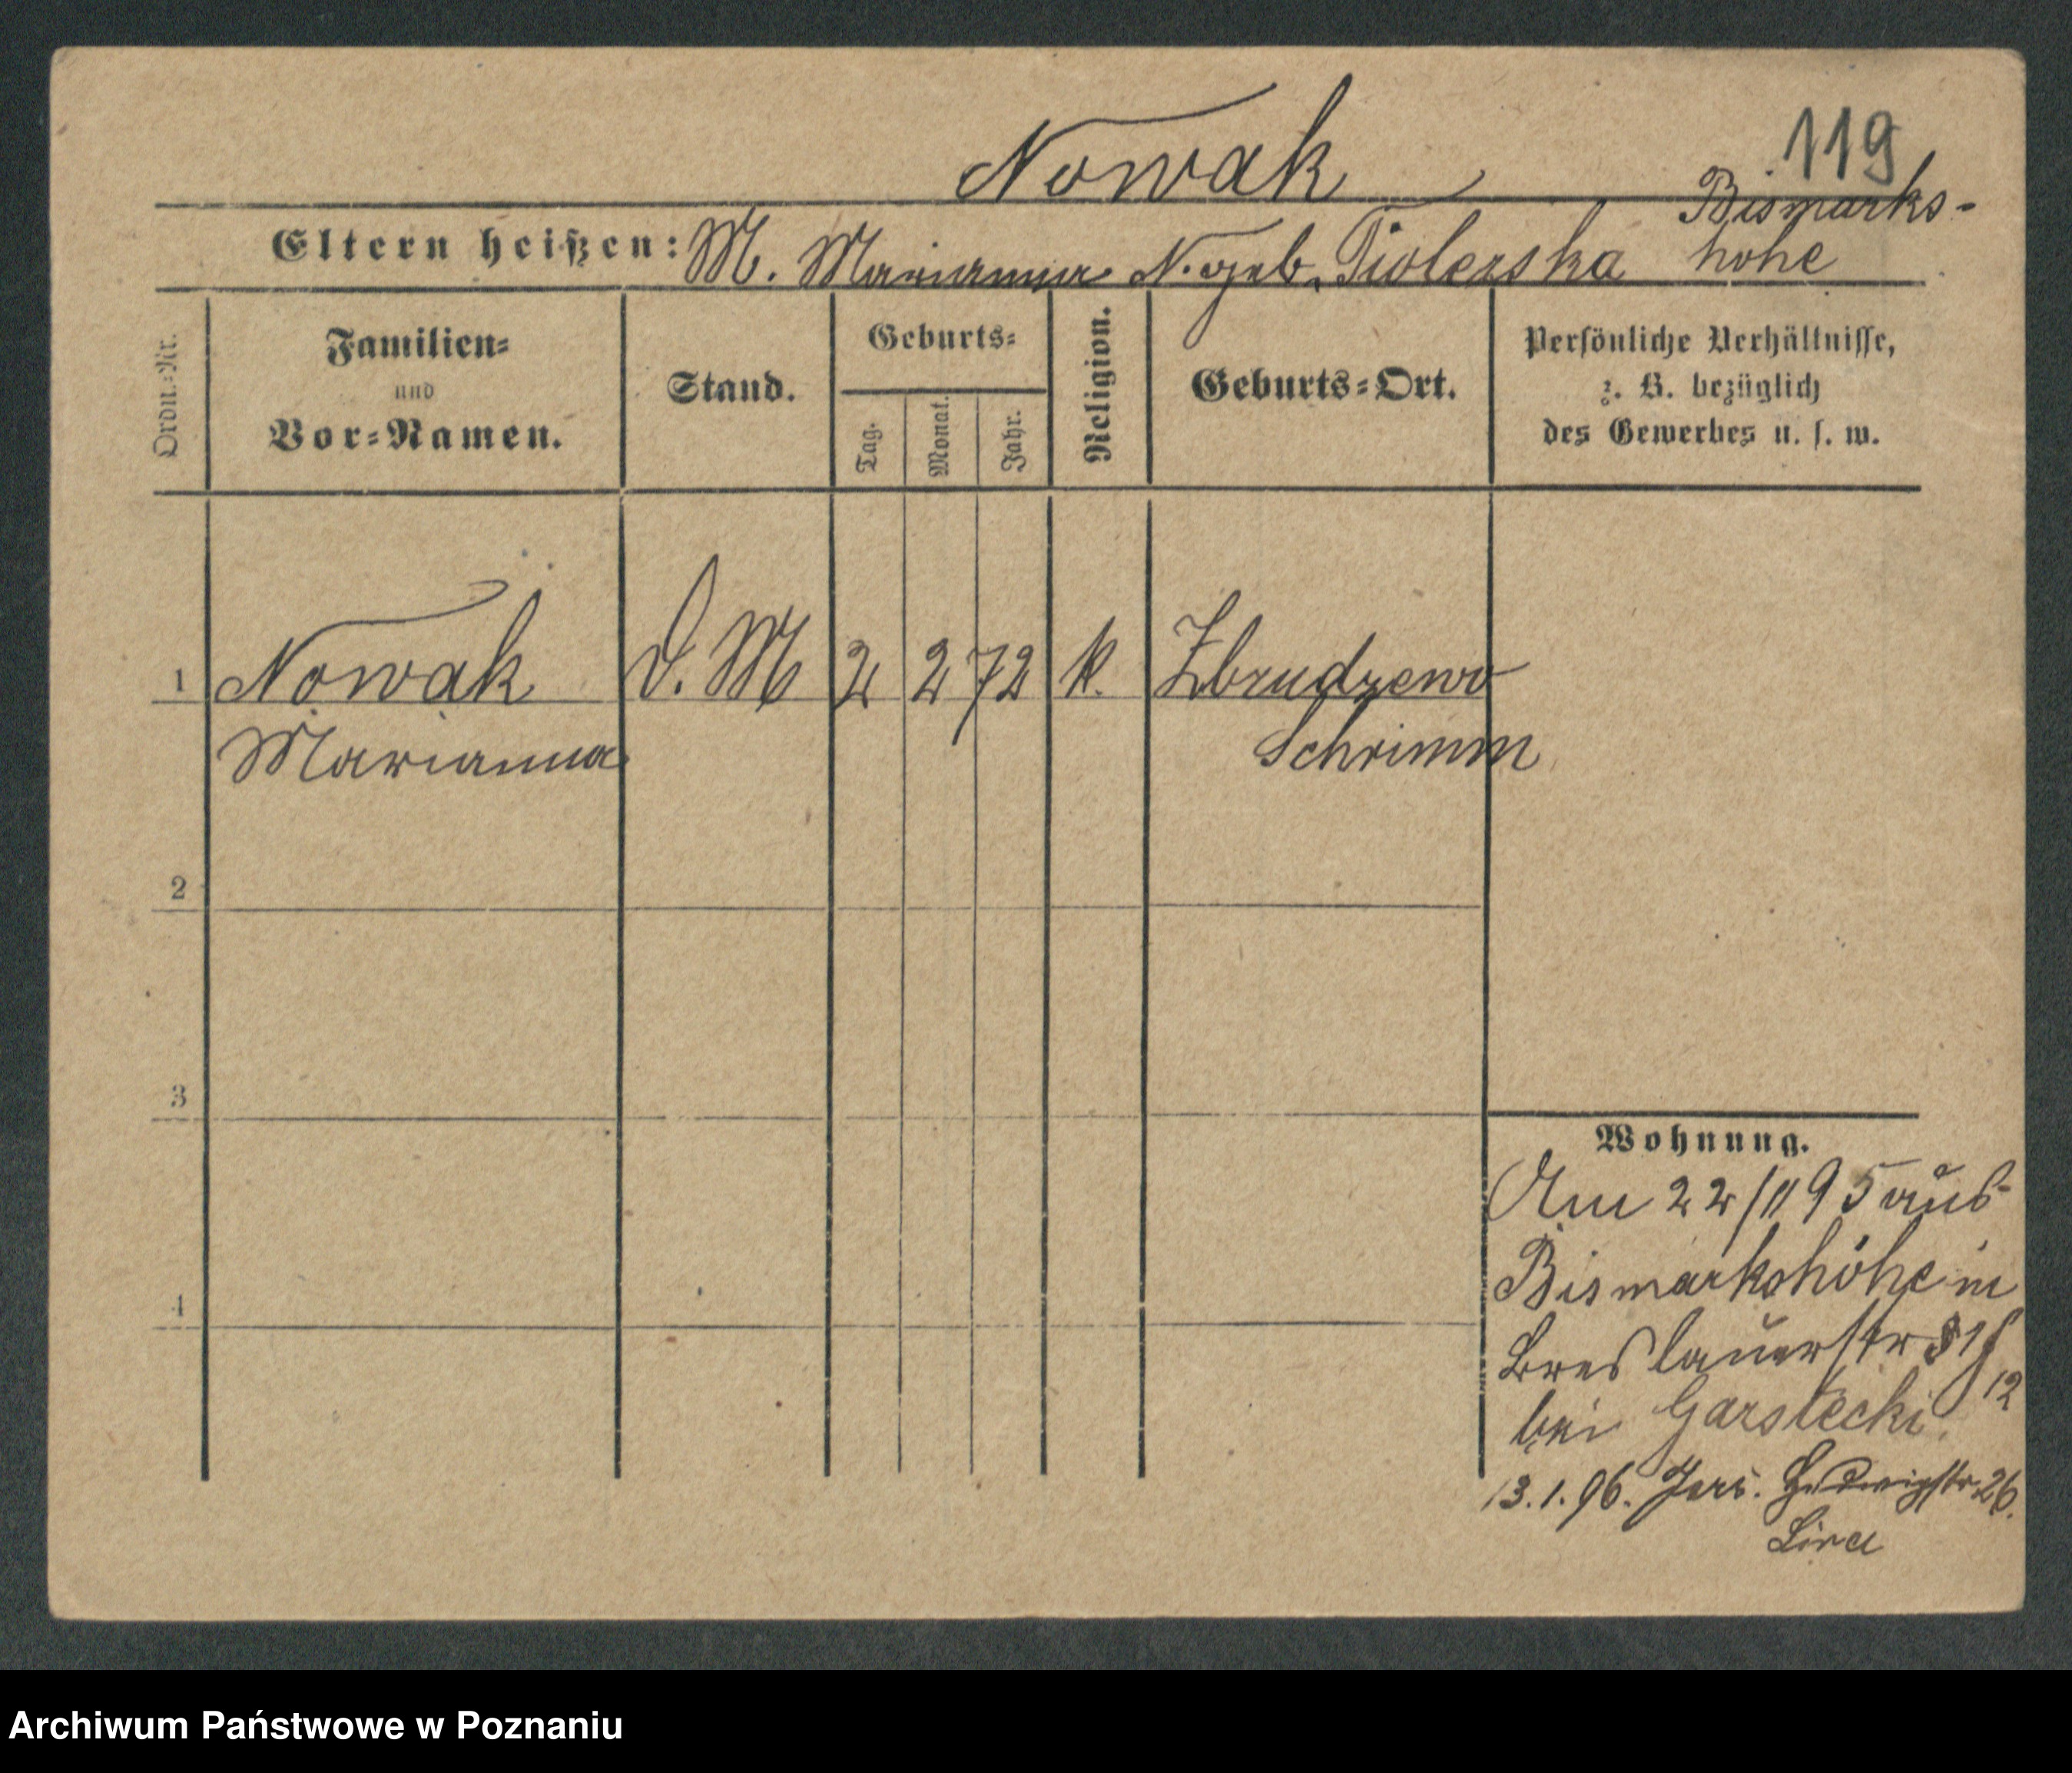 Nowak
119
Bismarks-
hohe
Eltern heißen: M. Marianna N. geb. Tiolerska
Ordn.=Nr.
Familien=
und
Vor=Namen.
Stand.
Geburts=
Tag.
Monat.
Jahr.
Religion.
Geburts=Ort.
Persönliche Verhältnisse,
z. B. bezüglich
des Gewerbes u. s. w.
1 Nowak D. M 2 2 72 k. Zbrudzewo
Marianna Schrimm
2
3
4
Wohnung.
Am 22/11 95 aus
Bismarkshöhe in
Breslauerstr
12
bei Garstecki
13.1.96. Jers. Hedwigstr. 26.
Archiwum Państwowe w Poznaniu